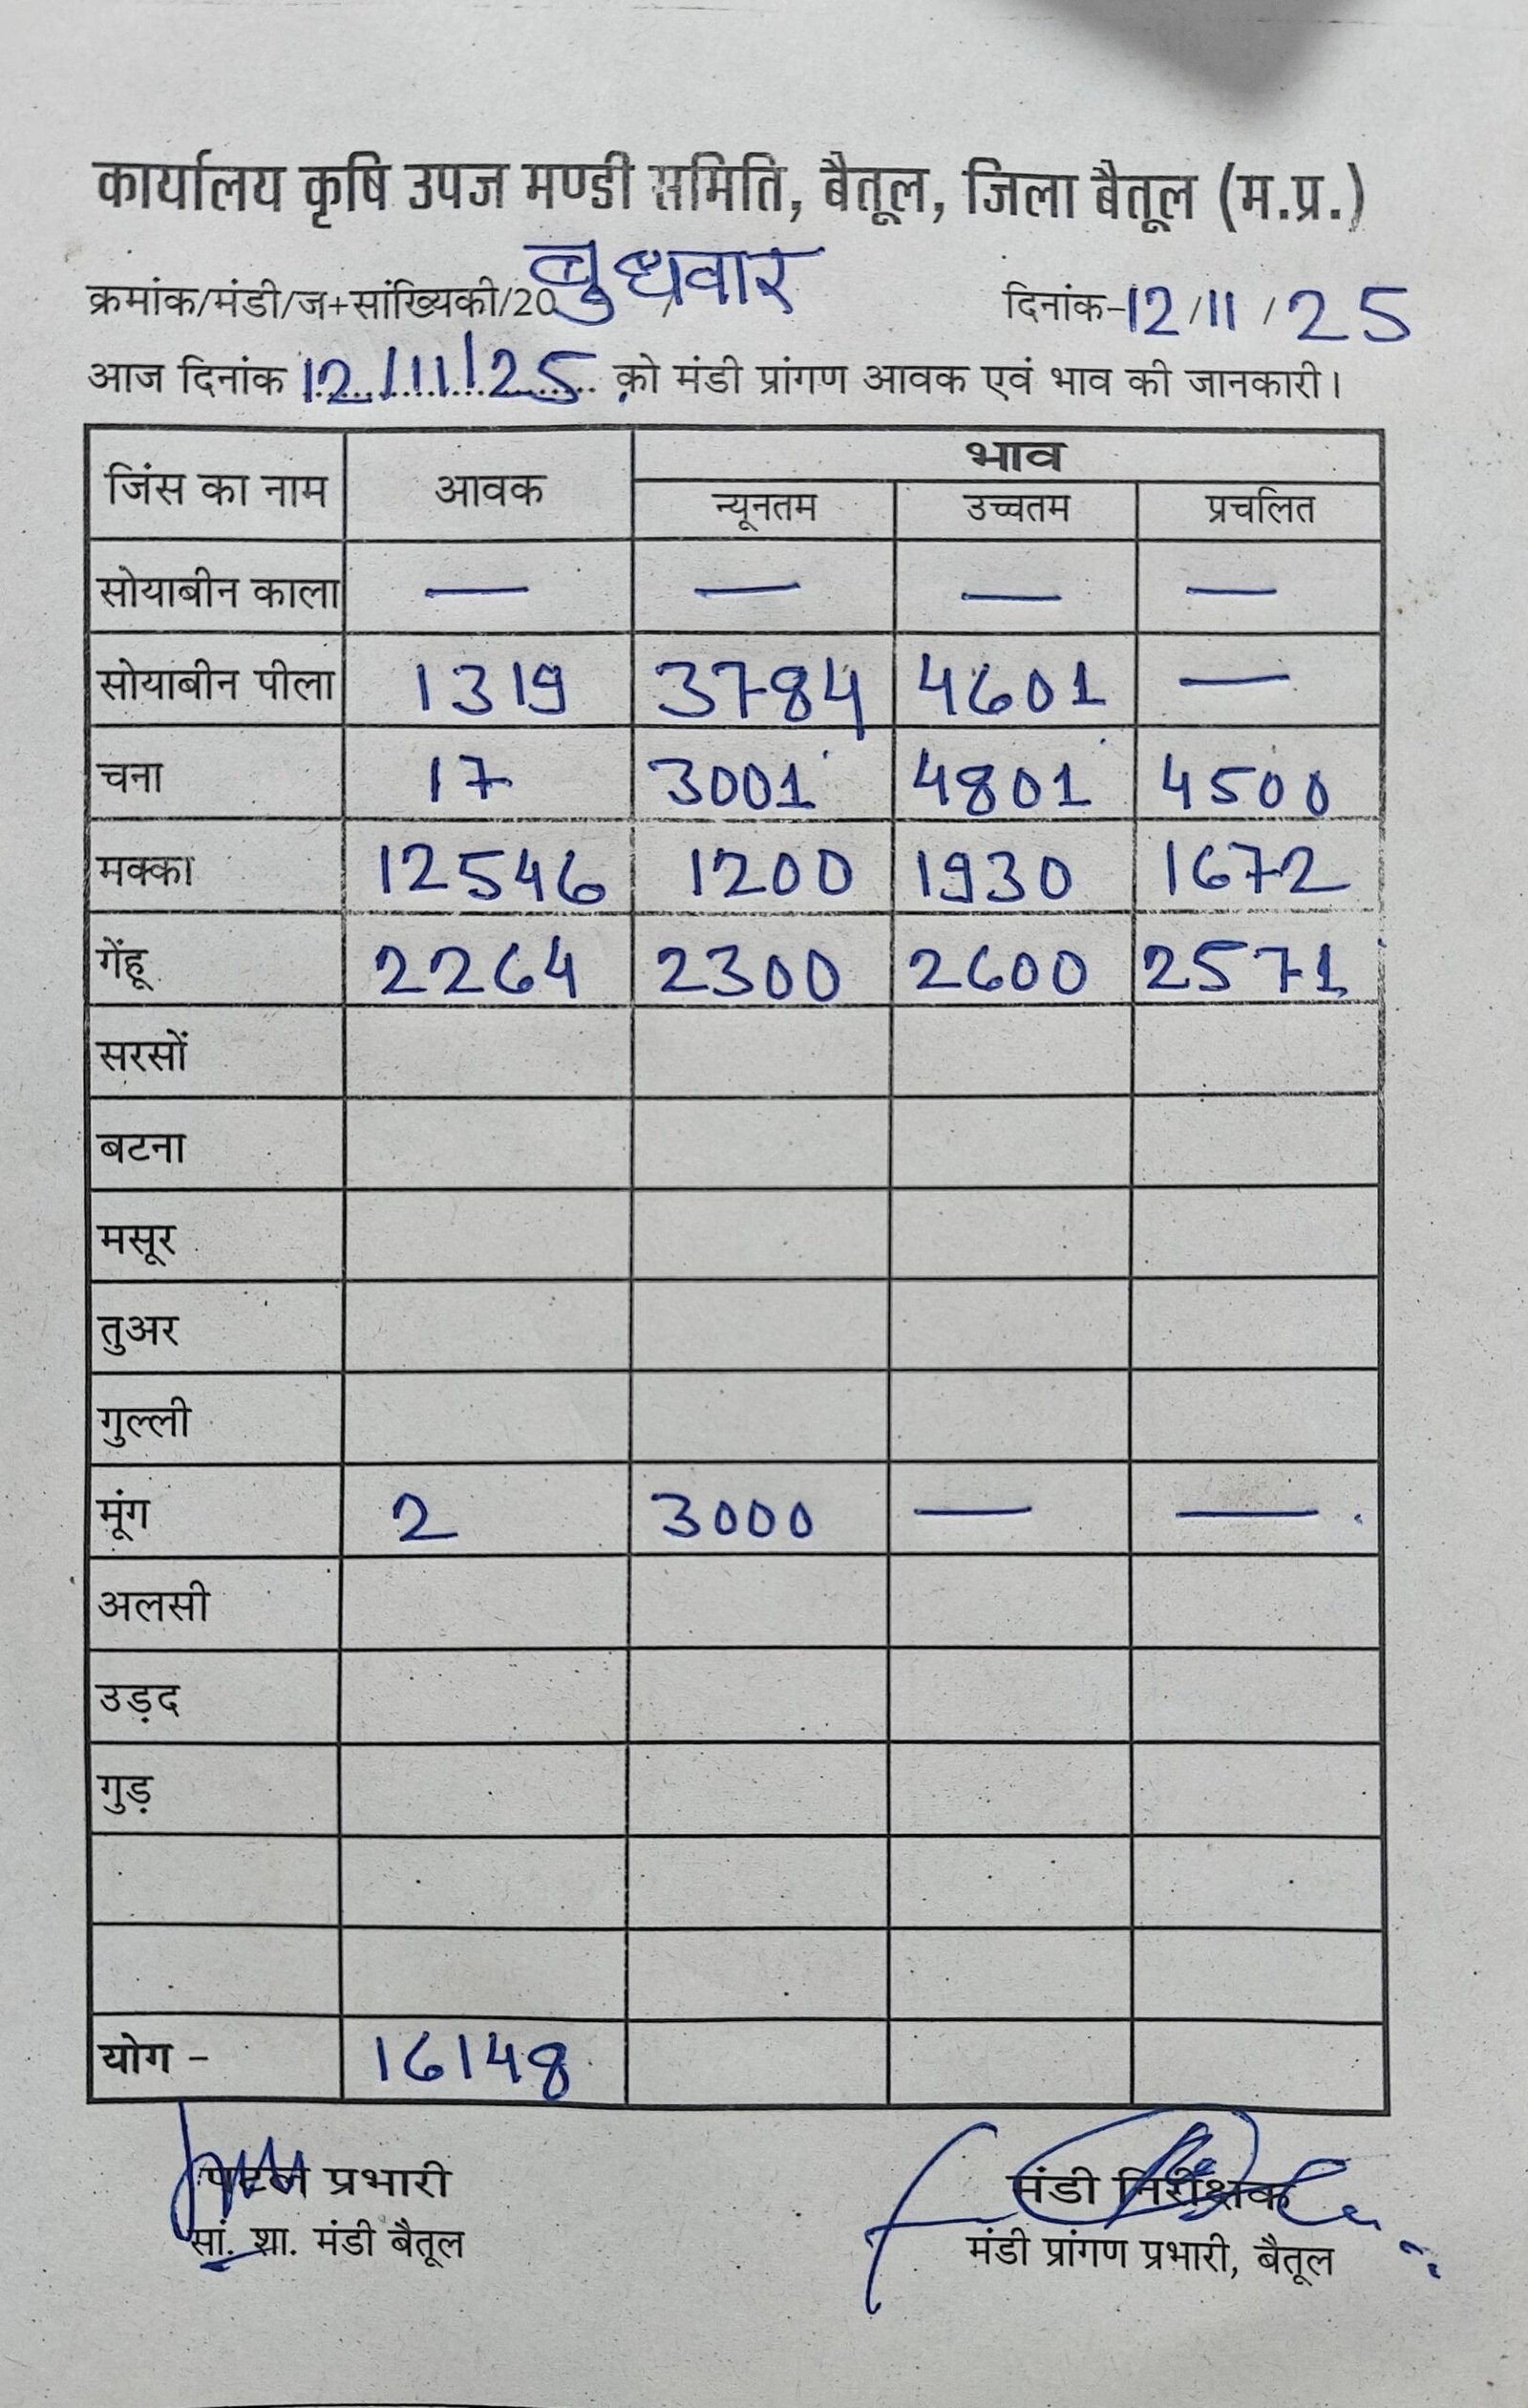 कार्यालय कृषि उपज मण्डी समिति, बैतूल, जिला बैतूल (म.प्र.)
क्रमांक/मंडी/ज+सांख्यिकी/20 बुधवार / दिनांक-12/11/25
आज दिनांक 12/11/25 को मंडी प्रांगण आवक एवं भाव की जानकारी।
जिंस का नाम आवक भाव
न्यूनतम उच्चतम प्रचलित
सोयाबीन काला — — — —
सोयाबीन पीला 1319 3784 4601 —
चना 17 3001 4801 4500
मक्का 12546 1200 1930 1672
गेंहू 2264 2300 2600 2571
सरसों
बटना
मसूर
तुअर
गुल्ली
मूंग 2 3000 — —
अलसी
उड़द
गुड़
योग - 16148
पटल प्रभारी मंडी निरीक्षक
सां. शा. मंडी बैतूल मंडी प्रांगण प्रभारी, बैतूल